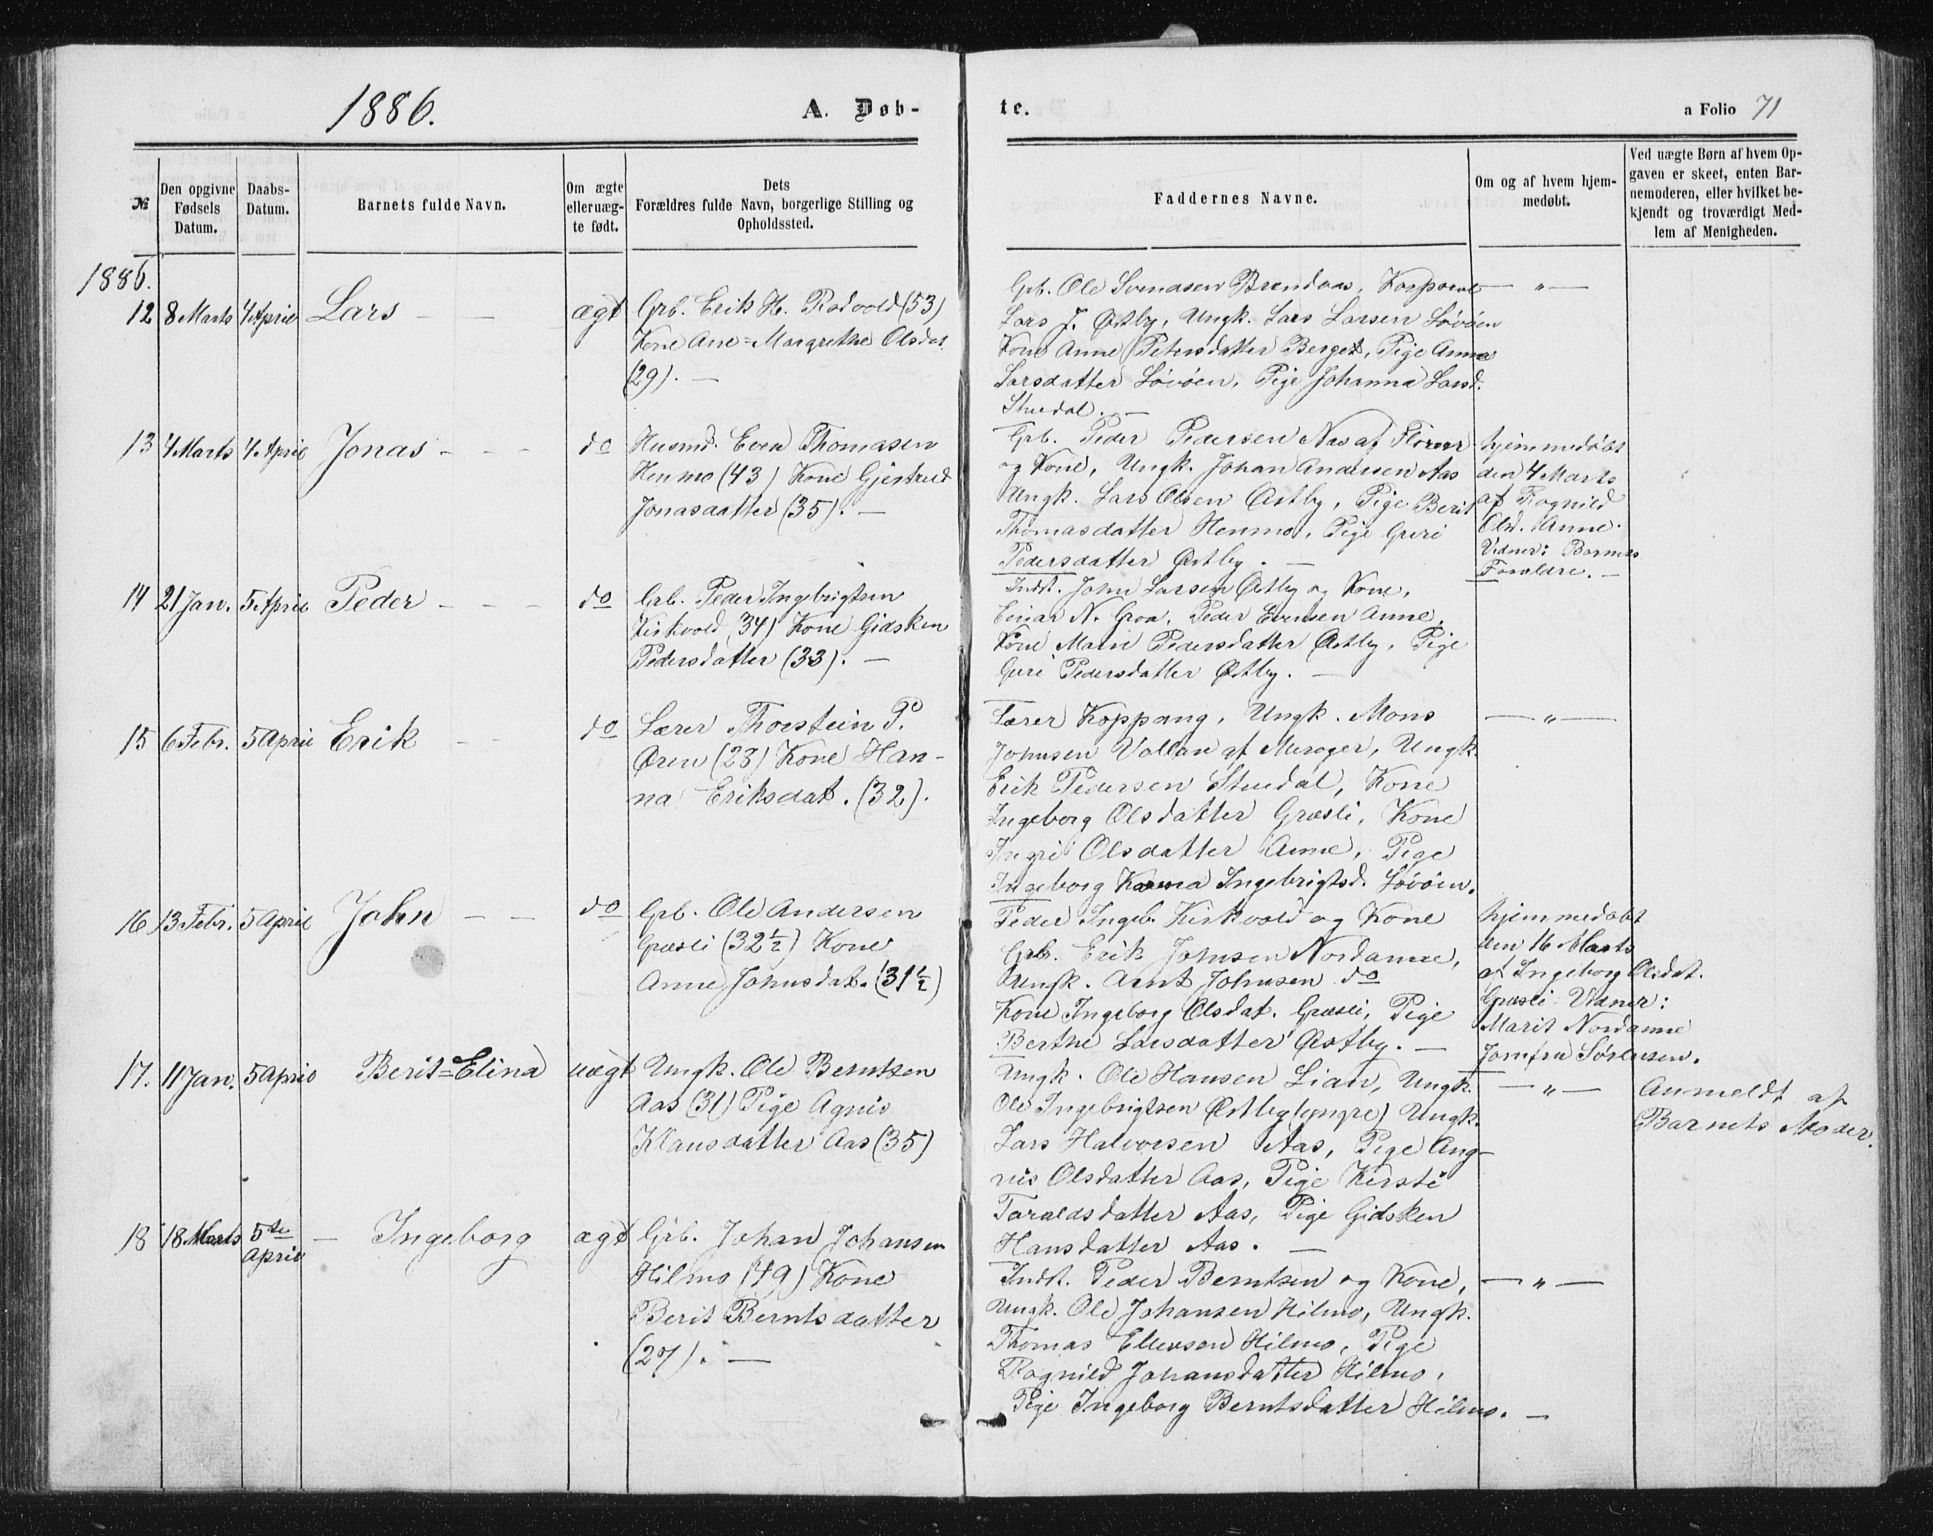 1886.
A. Døb-
te.
a Folio 71
№
Den opgivne
Fødsels
Datum.
Daabs-
Datum.
Barnets fulde Navn.
Om ægte
eller uæg-
te født.
Dets
Forældres fulde Navn, borgerlige Stilling og
Opholdssted.
Faddernes Navne.
Om og af hvem hjem-
medøbt.
Ved uægte Børn af hvem Op-
gaven er skeet, enten Bar-
nemoderen, eller hvilket be-
kjendt og troværdigt Med-
lem af Menigheden.
1886.
12 8 Marts 4 April Lars — — ægt
Grb. Erik H. Rodvold (53)
Kone Ane=Margrethe Olsdat
(29). —
Grb. Ole Svendsen Brendaas, Korporal
Lars J. Østby, Ungk. Lars Larsen Løvøen
Kone Anne Petersdatter Berget, Pige Anne
Larsdatter Løvøen, Pige Johanna Larsd.
Stuedal. —
— " —
13 4 Marts 4 April Jonas - - - do
Husmd. Even Thomasen
Henmo (43) Kone Gjertrud
Jonasdatter (35). —
Grb. Peder Pedersen Naas af
og Kone, Ungk. Johan Andersen Aas
Ungk. Lars Olsen Østby, Pige Berit
Thomasdatter Henmo, Pige Guri
Pedersdatter Østby. —
hjemmedøbt
den 4 Marts
af Ragnild
Olsd. Aune.
Vidner: Barnets
Forældre. —
14 21 Jan. 5 April Peder - - - do
Grb. Peder Ingebrigtsen
Kirkvold (34) Kone Gidsken
Pedersdatter (33). —
Indt. John Larsen Østby og Kone,
Einar N. Groa, Peder Evensen Aune,
Kone Marie Pedersdatter Østby, Pige
Guri Pedersdatter Østby. —
15 6 Febr. 5 April Erik - - do
Lærer Thorstein P.
Øren (23) Kone Han-
na Eriksdat. (32).
Lærer Koppang, Ungk. Mons
Johnsen Vollan af Merager, Ungk.
Erik Pedersen Stuedal, Kone
Ingeborg Olsdatter Græsli, Kone
Ingri Olsdatter Aune, Pige
Ingeborg Karma Ingebrigtsd. Løvøen.
— " —
16 13 Febr. 5 April John - - do
Grb. Ole Andersen
Græsli (32½) Kone
Anne Johnsdat. (31½)
Peder Ingeb. Kirkvold og Kone
Grb. Erik Johnsen Nordaune,
Ungk. Arnt Johnsen do
Kone Ingeborg Olsdat. Græsli, Pige
Berthe Larsdatter Østby. —
hjemmedøbt
den 16 Marts
af Ingeborg Olsdat.
Græsli Vidner:
Marit Nordaune
Jomfru Sørensen.
17. 11 Jan. 5 April Berit=Elina uægt
Ungk. Ole Berntsen
Aas (31) Pige Agnis
Klausdatter Aas (35)
Ungk. Ole Hansen Lian, Ungk.
Ole Ingebrigtsen Østby(yngre) Ungk.
Lars Halvorsen Aas, Pige Ang-
nis Olsdatter Aas, Pige Kirsti
Taraldsdatter Aas, Pige Gidsken
Hansdatter Aas. —
— " —
Anmeldt af
Barnets Moder.
18 18 Marts 5te April — Ingeborg ægt
Grb. Johan Johansen
Hilmo (49) Kone
Berit Berntsdatter
(27). —
Indt. Peder Berntsen og Kone,
Ungk. Ole Johansen Hilmo, Ungk.
Thomas Ellevsen Hilmo, Pige
Ragnild Johansdatter Hilmo,
Pige Ingeborg Berntsdatter Hilmo. —
— " —